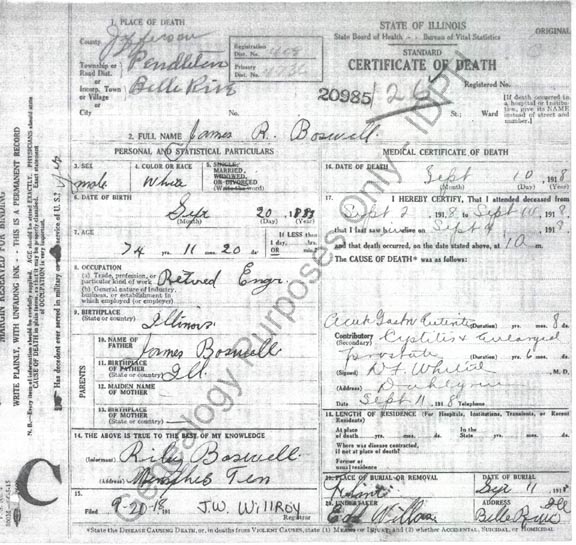 1. PLACE OF DEATH
County Jefferson
Township or Road Dist. Pendleton
or
Incorp. Town or Village Belle Rive
or
City No.
Registration Dist. No. 409
Primary Dist. No.
STATE OF ILLINOIS
State Board of Health - Bureau of Vital Statistics
ORIGINAL
STANDARD
CERTIFICATE OF DEATH
Registered No.
20985 126
St.; Ward
[If death occurred in a hospital or institution, give its NAME instead of street and number.]
2. FULL NAME James R. Boswell
PERSONAL AND STATISTICAL PARTICULARS
3. SEX male
4. COLOR OR RACE White
5. SINGLE, MARRIED, WIDOWED, OR DIVORCED (Write the word)
6. DATE OF BIRTH
20
(Month) (Day) (Year)
7. AGE
74 yrs. 11 mos. 20 ds.
If LESS than 1 day, hrs. or min.
8. OCCUPATION
(a) Trade, profession, or particular kind of work Retired Engr.
(b) General nature of industry, business, or establishment in which employed (or employer)
9. BIRTHPLACE (State or country) Illinois
PARENTS
10. NAME OF FATHER James Boswell
11. BIRTHPLACE OF FATHER (State or country) Ill.
12. MAIDEN NAME OF MOTHER
13. BIRTHPLACE OF MOTHER (State or country)
14. THE ABOVE IS TRUE TO THE BEST OF MY KNOWLEDGE
(Informant) Riley Boswell
(Address) Memphis Ten
15.
Filed 9-20-18 J.W. Willroy
Registrar
MEDICAL CERTIFICATE OF DEATH
16. DATE OF DEATH
Sept 10 1918
(Month) (Day) (Year)
17. I HEREBY CERTIFY, That I attended deceased from
Sept 2 1918 to Sept 10 1918
that I last saw him alive on Sept 9 191
and that death occurred, on the date stated above, at 10 m.
The CAUSE OF DEATH* was as follows:
Acute Gastro Enteritis (Duration) yrs. mos. 8 ds.
Contributory (Secondary) Cystitis & Enlarged
prostate (Duration) yrs. 6 mos. ds.
(Signed) M.D.
(Address)
Sept 11 1918 Telephone
18. LENGTH OF RESIDENCE (For Hospitals, Institutions, Transients, or Recent Residents)
At place of death yrs. mos. ds. In the State yrs. mos. ds.
Where was disease contracted, if not at place of death?
Former or usual residence
19. PLACE OF BURIAL OR REMOVAL
DATE OF BURIAL
Sept 11 1918
20. UNDERTAKER
ADDRESS
Belle Rive Ill
*State the DISEASE CAUSING DEATH, or, in deaths from VIOLENT CAUSES, state (1) MEANS OF INJURY; and (2) whether ACCIDENTAL, SUICIDAL, or HOMICIDAL
MARGIN RESERVED FOR BINDING
WRITE PLAINLY, WITH UNFADING INK - THIS IS A PERMANENT RECORD
Has decedent ever served in military or service of U.S.?
C
Genealogy Purposes Only IDPH